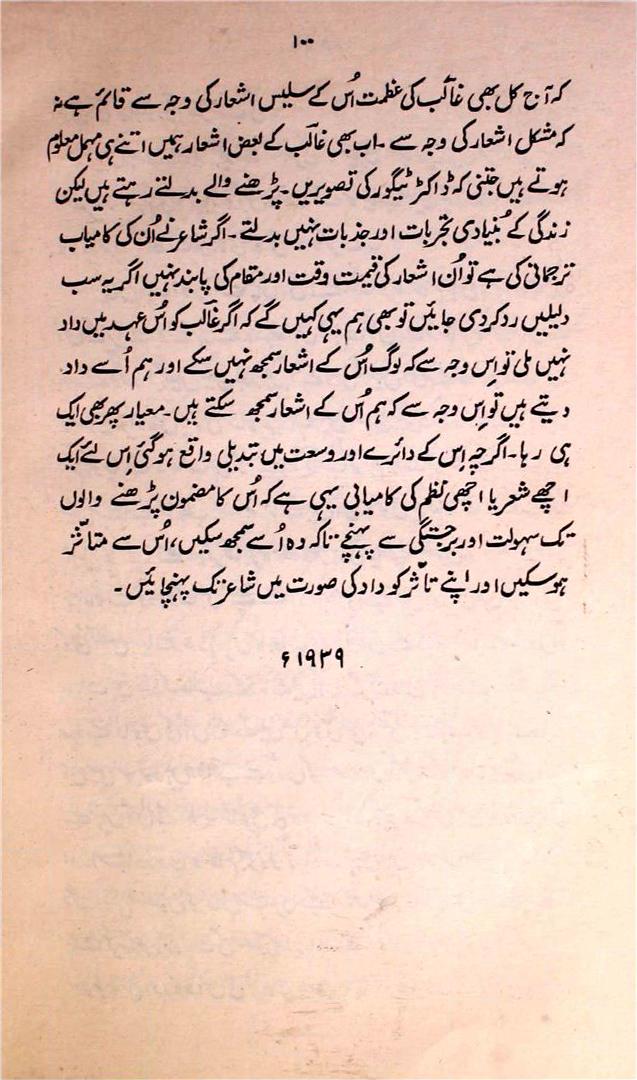 ۱۰۰
کہ آج کل بھی غالبؔ کی عظمت اُس کے سلیس اشعار کی وجہ سے قائم ہے نہ
کہ مشکل اشعار کی وجہ سے ۔ اب بھی غالبؔ کے بعض اشعار ہمیں اتنے ہی مہمل معلوم
ہوتے ہیں جتنی کہ ڈاکٹر ٹیگور کی تصویریں ۔ پڑھنے والے بدلتے رہتے ہیں لیکن
زندگی کے بُنیادی تجربات اور جذبات نہیں بدلتے ۔ اگر شاعر نے اُن کی کامیاب
ترجمانی کی ہے تو اُن اشعار کی قیمت وقت اور مقام کی پابند نہیں اگر یہ سب
دلیلیں رد کر دی جائیں تو بھی ہم یہی کہیں گے کہ اگر غالبؔ کو اُس عہد میں داد
نہیں ملی تو اِس وجہ سے کہ لوگ اُس کے اشعار سمجھ نہیں سکے اور ہم اُسے داد
دیتے ہیں تو اِس وجہ سے کہ ہم اُس کے اشعار سمجھ سکتے ہیں ۔ معیار پھر بھی ایک
ہی رہا ۔ اگرچہ اِس کے دائرے اور وسعت میں تبدیلی واقع ہو گئی اِس لئے ایک
اچھے شعر یا اچھی نظم کی کامیابی یہی ہے کہ اُس کا مضمون پڑھنے والوں
تک سہولت اور برجستگی سے پہنچے تاکہ وہ اُسے سمجھ سکیں، اُس سے متاثر
ہو سکیں اور اپنے تاثر کو داد کی صورت میں شاعر تک پہنچائیں ۔
۱۹۳۹ء